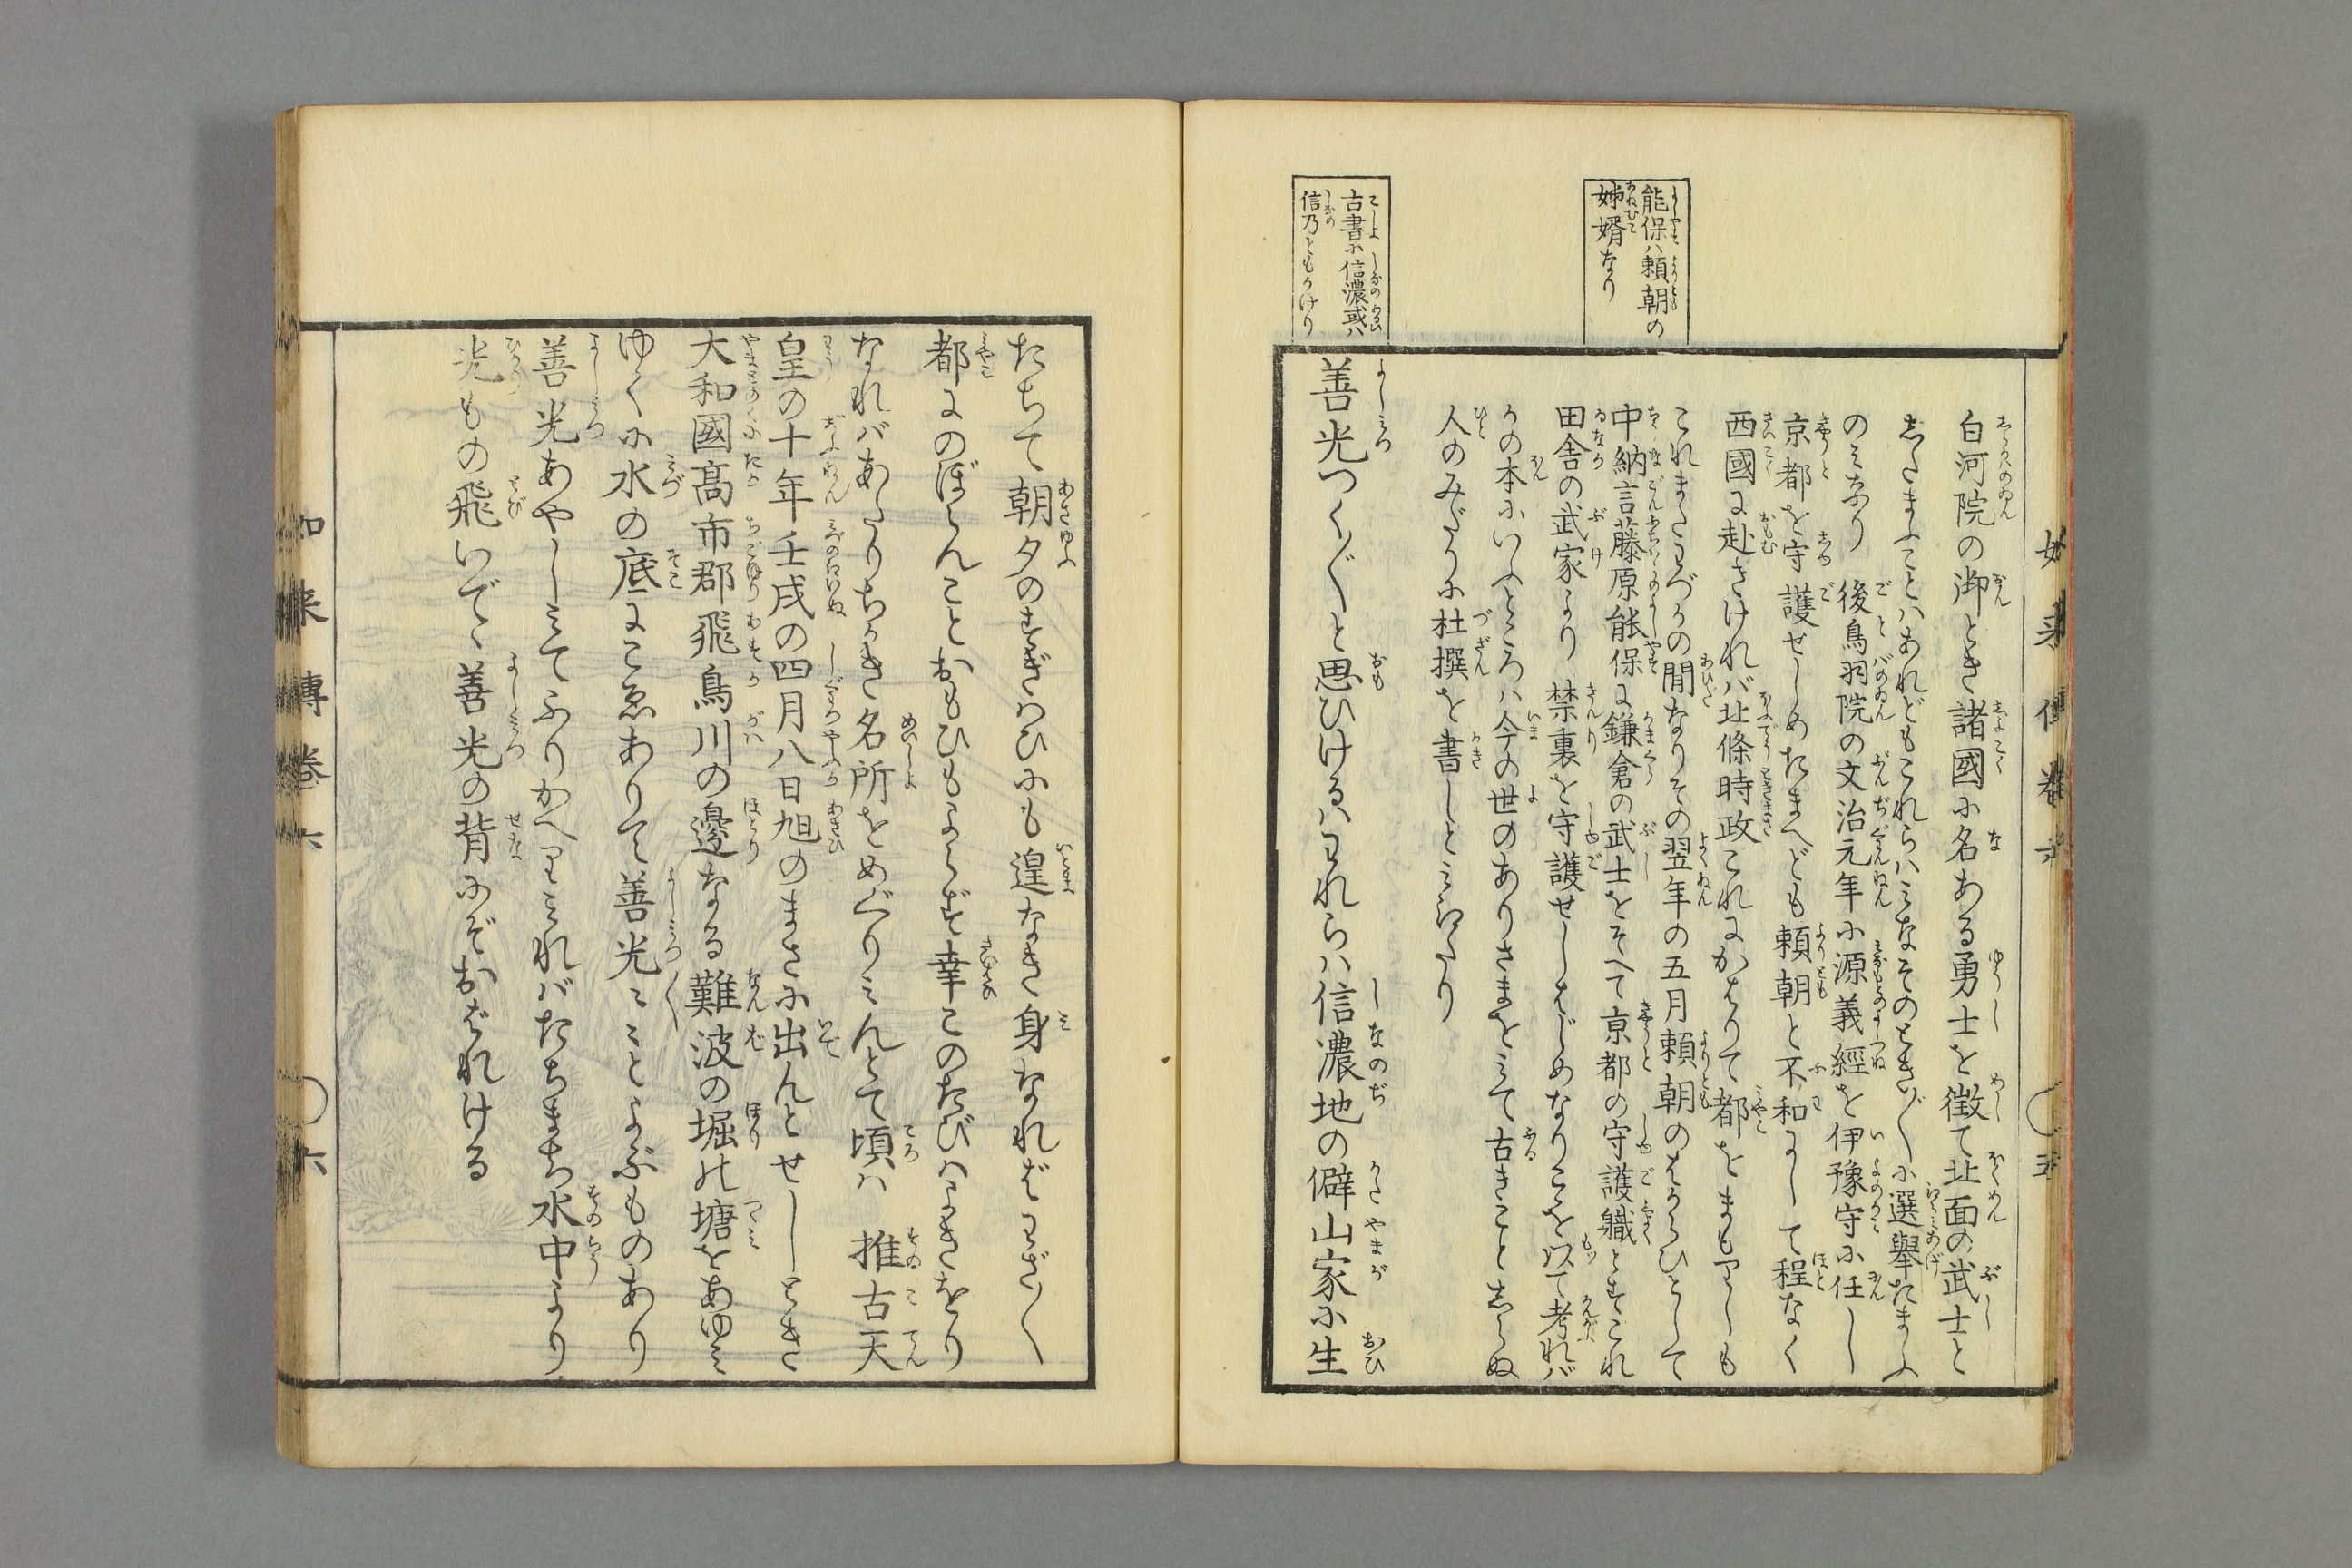 能保ハ頼朝の
姉婿なり
古書に信濃或ハ
信乃ともかけり
白河院の御とき諸國に名ある勇士を徴て北面の武士と
志たまふことハあれどもこれらハミなそのとき〴〵に選舉たまふ
のミなり 後鳥羽院の文治元年に源義經を伊豫守に任し
京都を守護せしめたまへども頼朝と不和にして程なく
西國に赴きけれバ北條時政これにかはりて都をまもりしも
これまたわづかの間なりその翌年の五月頼朝のはからひとして
中納言藤原能保に鎌倉の武士をそへて京都の守護職とすこれ
田舎の武家より 禁裏を守護せしはじめなりこを以て考れバ
かの本にいへところハ今の世のありさまをミて古きこと志らぬ
人のみだりに杜撰を書しとミえたり
善光つく〴〵と思ひけるハわれらハ信濃地の僻山家に生
如来傳巻六 五
たちて朝夕のすぎハひにも遑なき身なればわざ〳〵
都にのぼらんことおもひもよらず幸このたびハよきをり
なれバあたりちかき名所をめぐりミんとて頃ハ 推古天
皇の十年壬戌の四月八日旭のまさに出んとせしとき
大和國髙市郡飛鳥川の邊なる難波の堀の塘をあゆミ
ゆくに水の底にこゑありて善光〻〻とよぶものあり
善光あやしミてふりかへりミれバたちまち水中より
光もの飛いで〻善光の背にぞおはれける
如来傳巻六 六